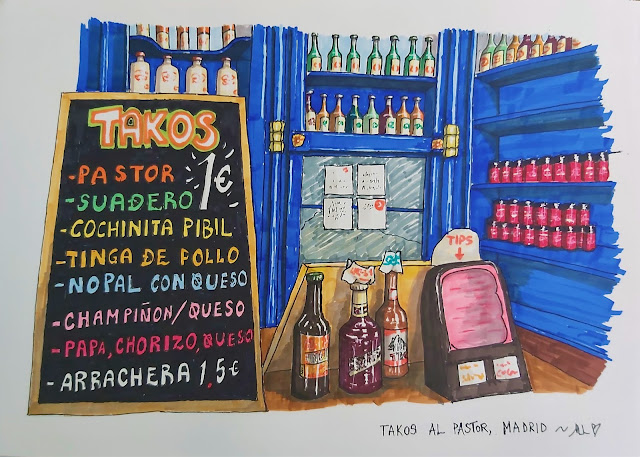 TAKOS
-PASTOR 1€
-SUADERO
-COCHINITA PIBIL
-TINGA DE POLLO
-NOPAL CON QUESO
-CHAMPIÑON/QUESO
-PAPA, CHORIZO, QUESO
-ARRACHERA 1,5€
TIPS
TAKOS AL PASTOR, MADRID